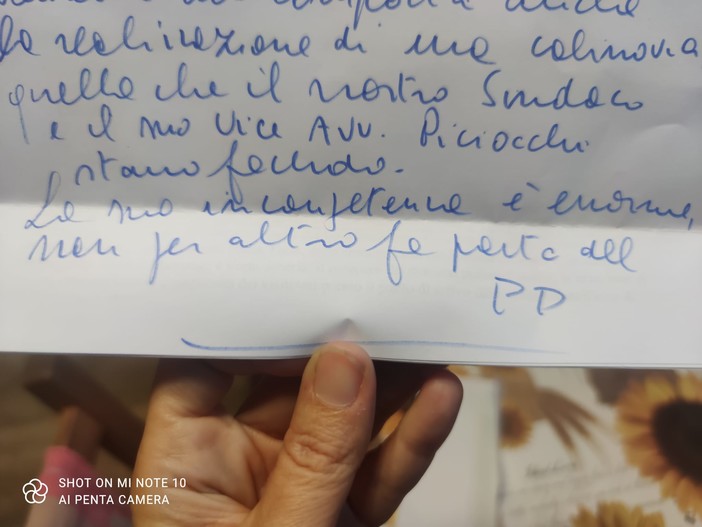 anche
la realizzazione di una cabinovia
quella che il nostro Sindaco
e il suo Vice Avv. Piciocchi
stanno facendo.
La sua incompetenza è enorme,
non per altro fa parte del
PD
SHOT ON MI NOTE 10
AI PENTA CAMERA